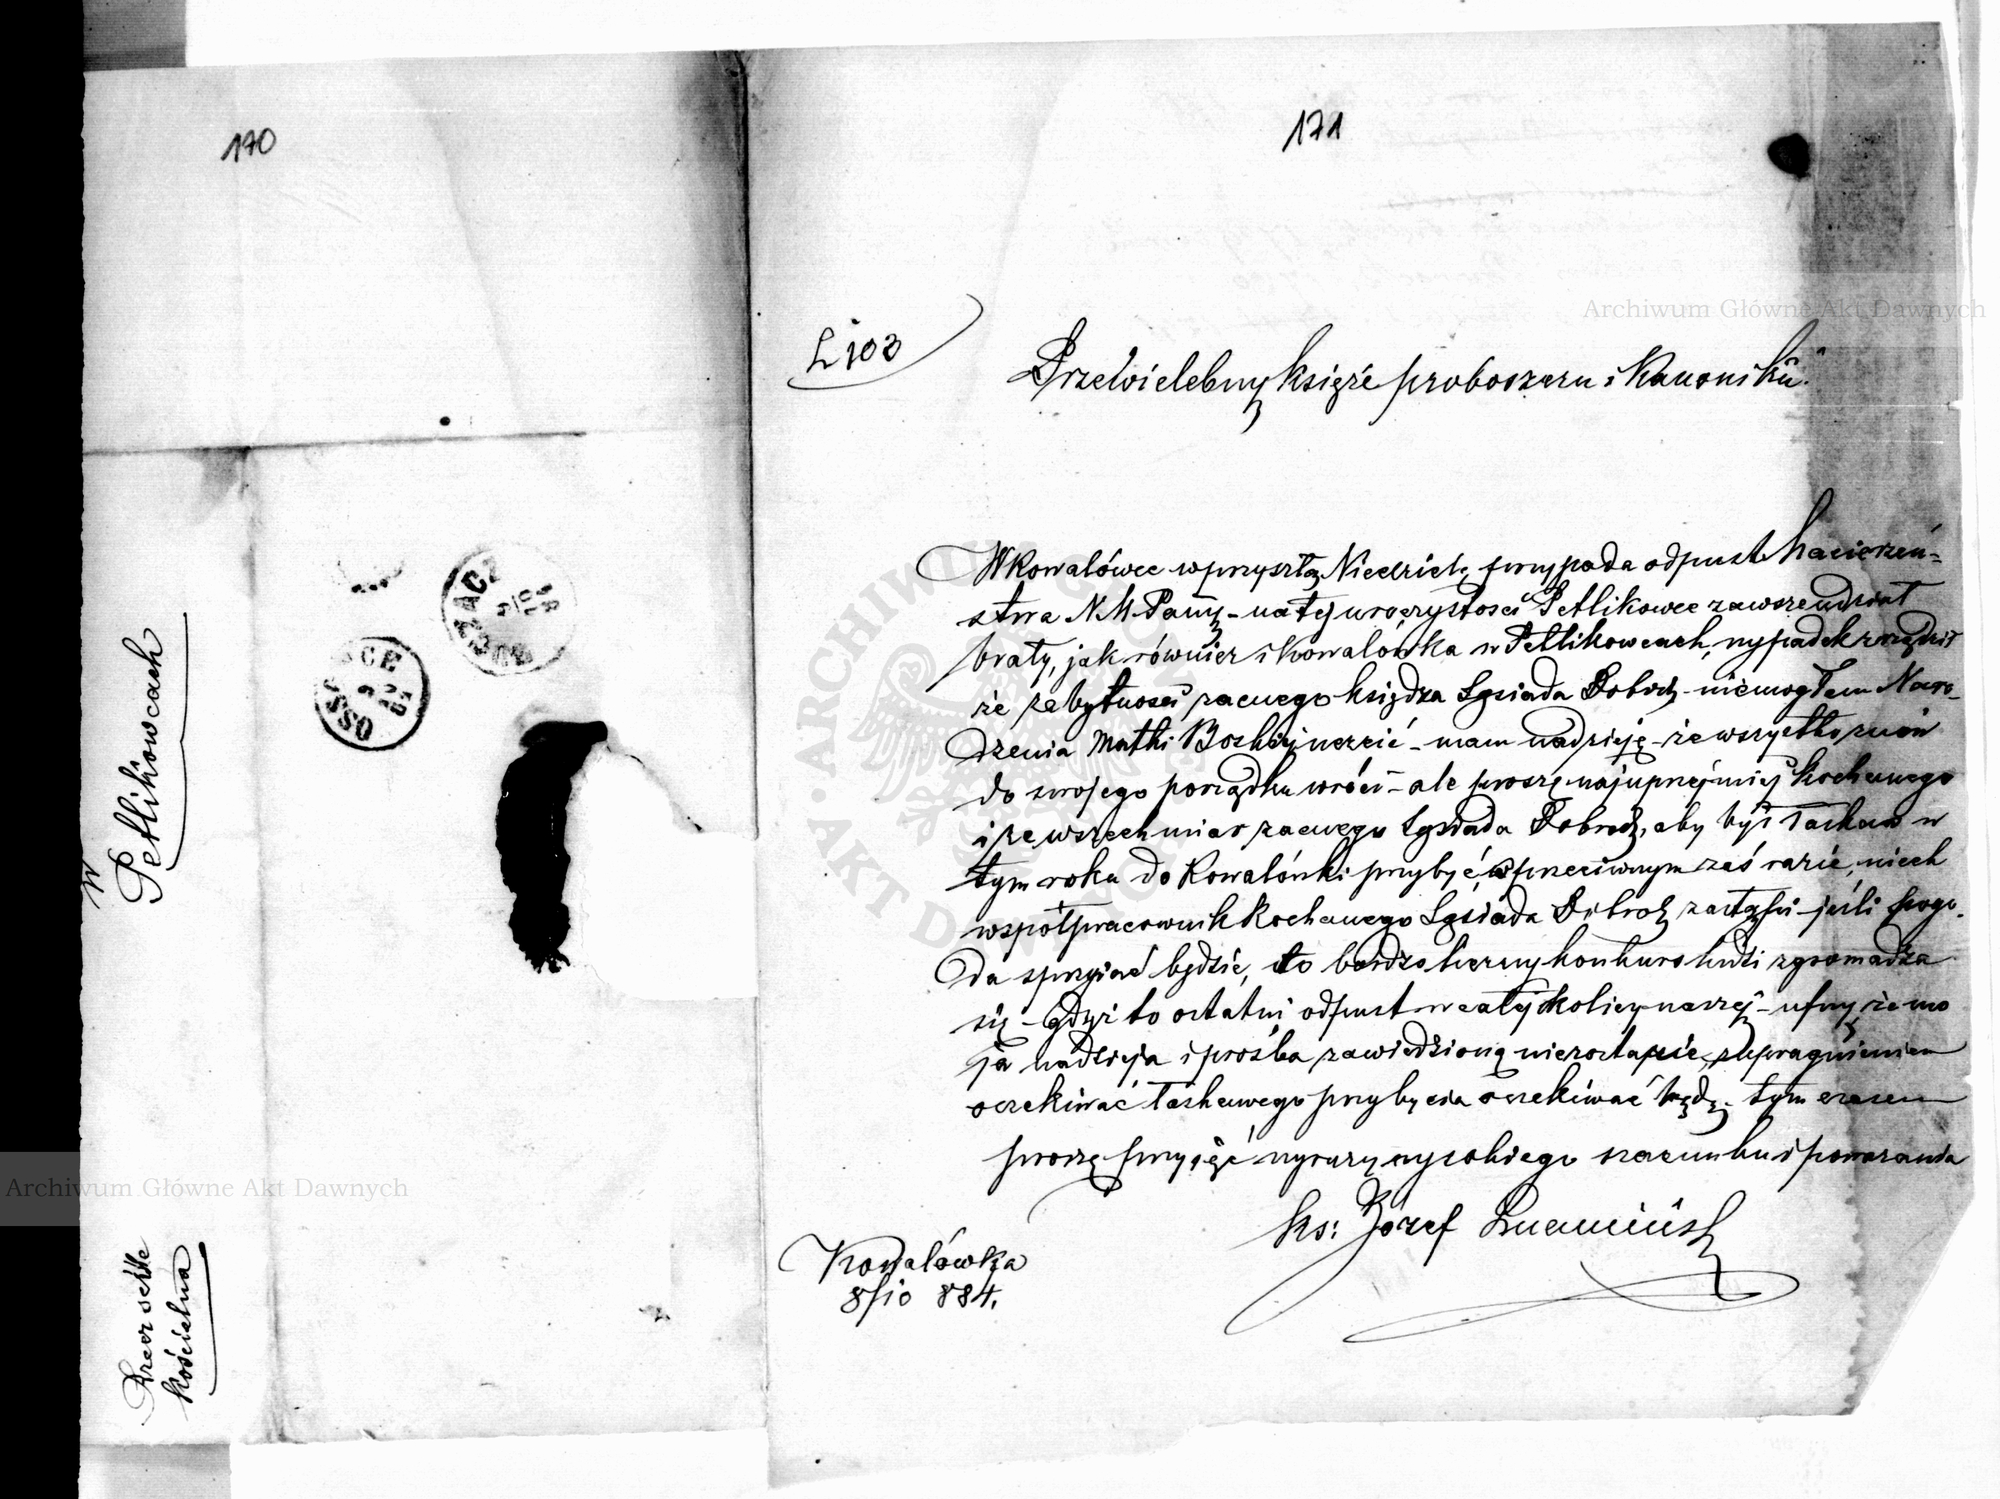 170
W
Petlikowcach
Rzecz ściśle
kościelna
BUCZACZ
9
10
OSSOWCE
171
L 103
Przewielebny księże proboszczu i Kanoniku!
W Kowalówce w przyszłą Niedzielę przypada odpust Macierzeń-
stwa N. M. Panny - na tej uroczystości Petlikowce zawsze udział
brały, jak również i Kowalówka w Petlikowcach, wypadek zrządził
że za bytności zacnego księdza Sąsiada Dobrodz. niemogłem Naro-
dzenia Matki Boskiej uczcić - mam nadzieję - że wszystko znów
do swojego porządku wróci - ale proszę najuprzejmiej kochanego
i ze wszech miar zacnego Sąsiada Dobrodz. aby był łaskaw w
tym roku do Kowalówki przybyć, w przeciwnym zaś razie, niech
współpracownik kochanego Sąsiada Dobrodz zastąpi - jeśli pogo-
da sprzyjać będzie, to bardzo liczny konkurs ludzi zgromadza
się - gdyż to ostatni odpust w całej okolicy naszej - ufny, że mo
ja nadzieja i prośba zawiedzioną niezostanie, z upragnieniem
oczekiwać łaskawego przybycia oczekiwać będę - tym czasem
proszę przyjąć wyrazy wysokiego szacunku i poważania
ks: Józef
Kowalówka
8/10 884.
ARCHIWUM GŁÓWNE · AKT DAWNYCH
Archiwum Główne Akt Dawnych
Archiwum Główne Akt Dawnych